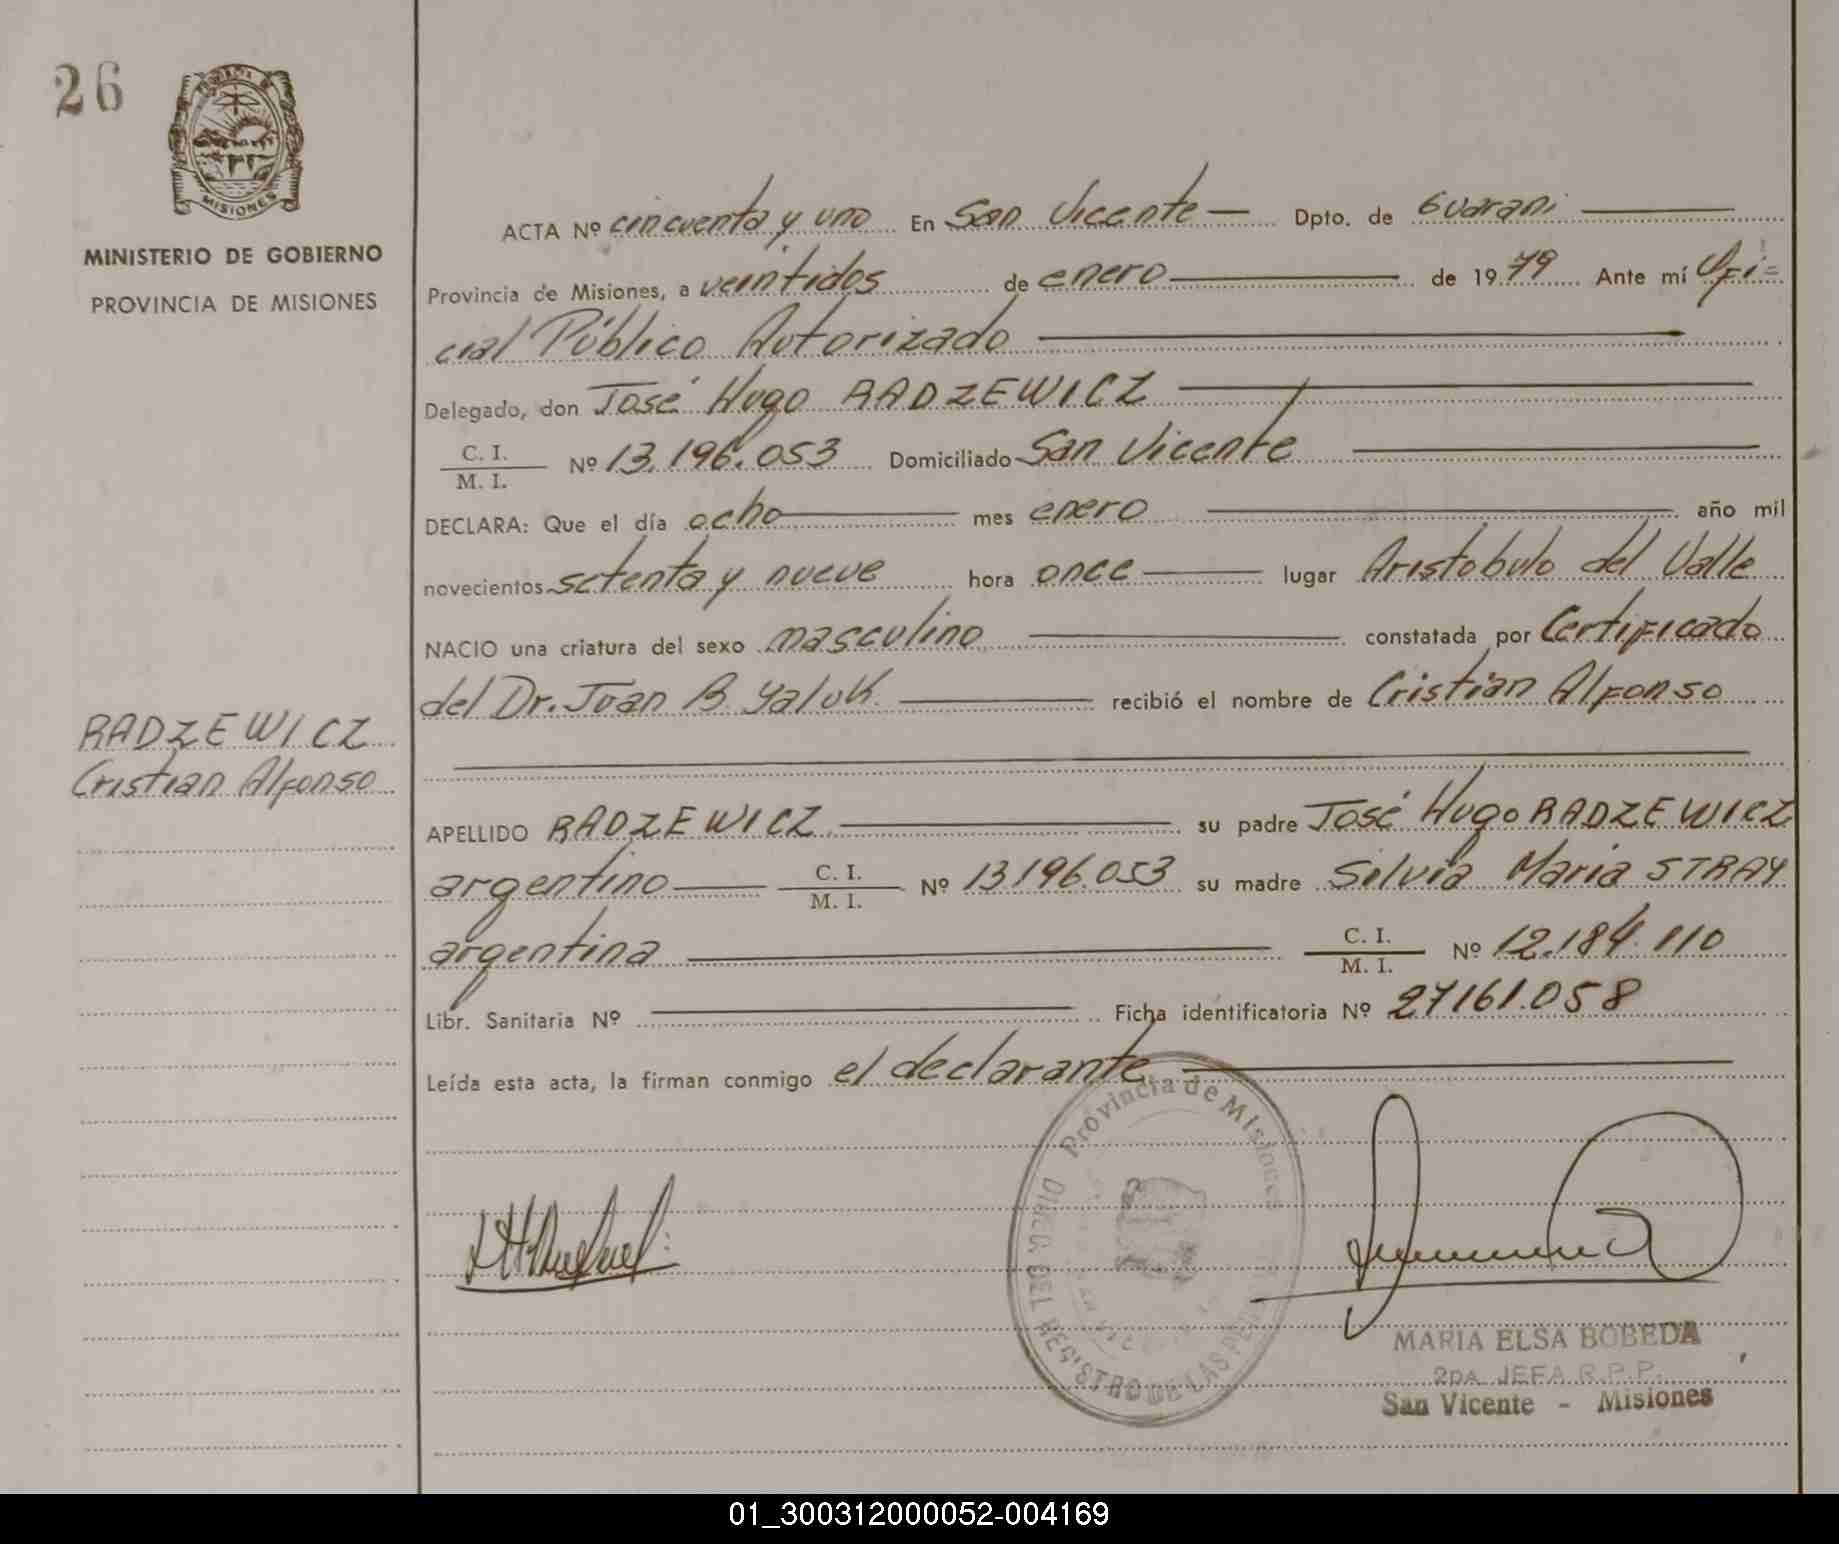 26
MISIONES
MINISTERIO DE GOBIERNO
PROVINCIA DE MISIONES
RADZEWICZ
Cristian Alfonso
ACTA Nº cincuenta y uno En San Vicente Dpto. de Guarani
Provincia de Misiones, a veintidos de enero de 1979 Ante mí Ofi=
cial Público Autorizado
Delegado, don José Hugo RADZEWICZ
C. I.
M. I. Nº 13.196.053 Domiciliado San Vicente
DECLARA: Que el día ocho mes enero año mil
novecientos setenta y nueve hora once lugar Aristobulo del Valle
NACIO una criatura del sexo masculino constatada por Certificado
del Dr. Juan B. Yaluk. recibió el nombre de Cristian Alfonso
APELLIDO RADZEWICZ su padre José Hugo RADZEWICZ
argentino C. I. M. I. Nº 13.196.053 su madre Silvia Maria STRAY
argentina C. I. M. I. Nº 12.184.110
Libr. Sanitaria Nº Ficha identificatoria Nº 27161.058
Leída esta acta, la firman conmigo el declarante
Provincia de Misiones
DEL REGISTRO DE LAS
MARIA ELSA BOBEDA
2DA JEFA R.P.P.
San Vicente - Misiones
01_300312000052-004169